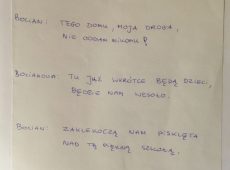 BOCIAN: TEGO DOMU, MOJA DROGA,
NIE ODDAM NIKOMU!
BOCIANOWA: TU JUŻ WKRÓTCE BĘDĄ DZIECI,
BĘDZIE NAM WESOŁO.
BOCIAN: ZAKLEKOCZĄ NAM PISKLĘTA
NAD TĄ PIĘKNĄ SZKOŁĄ.